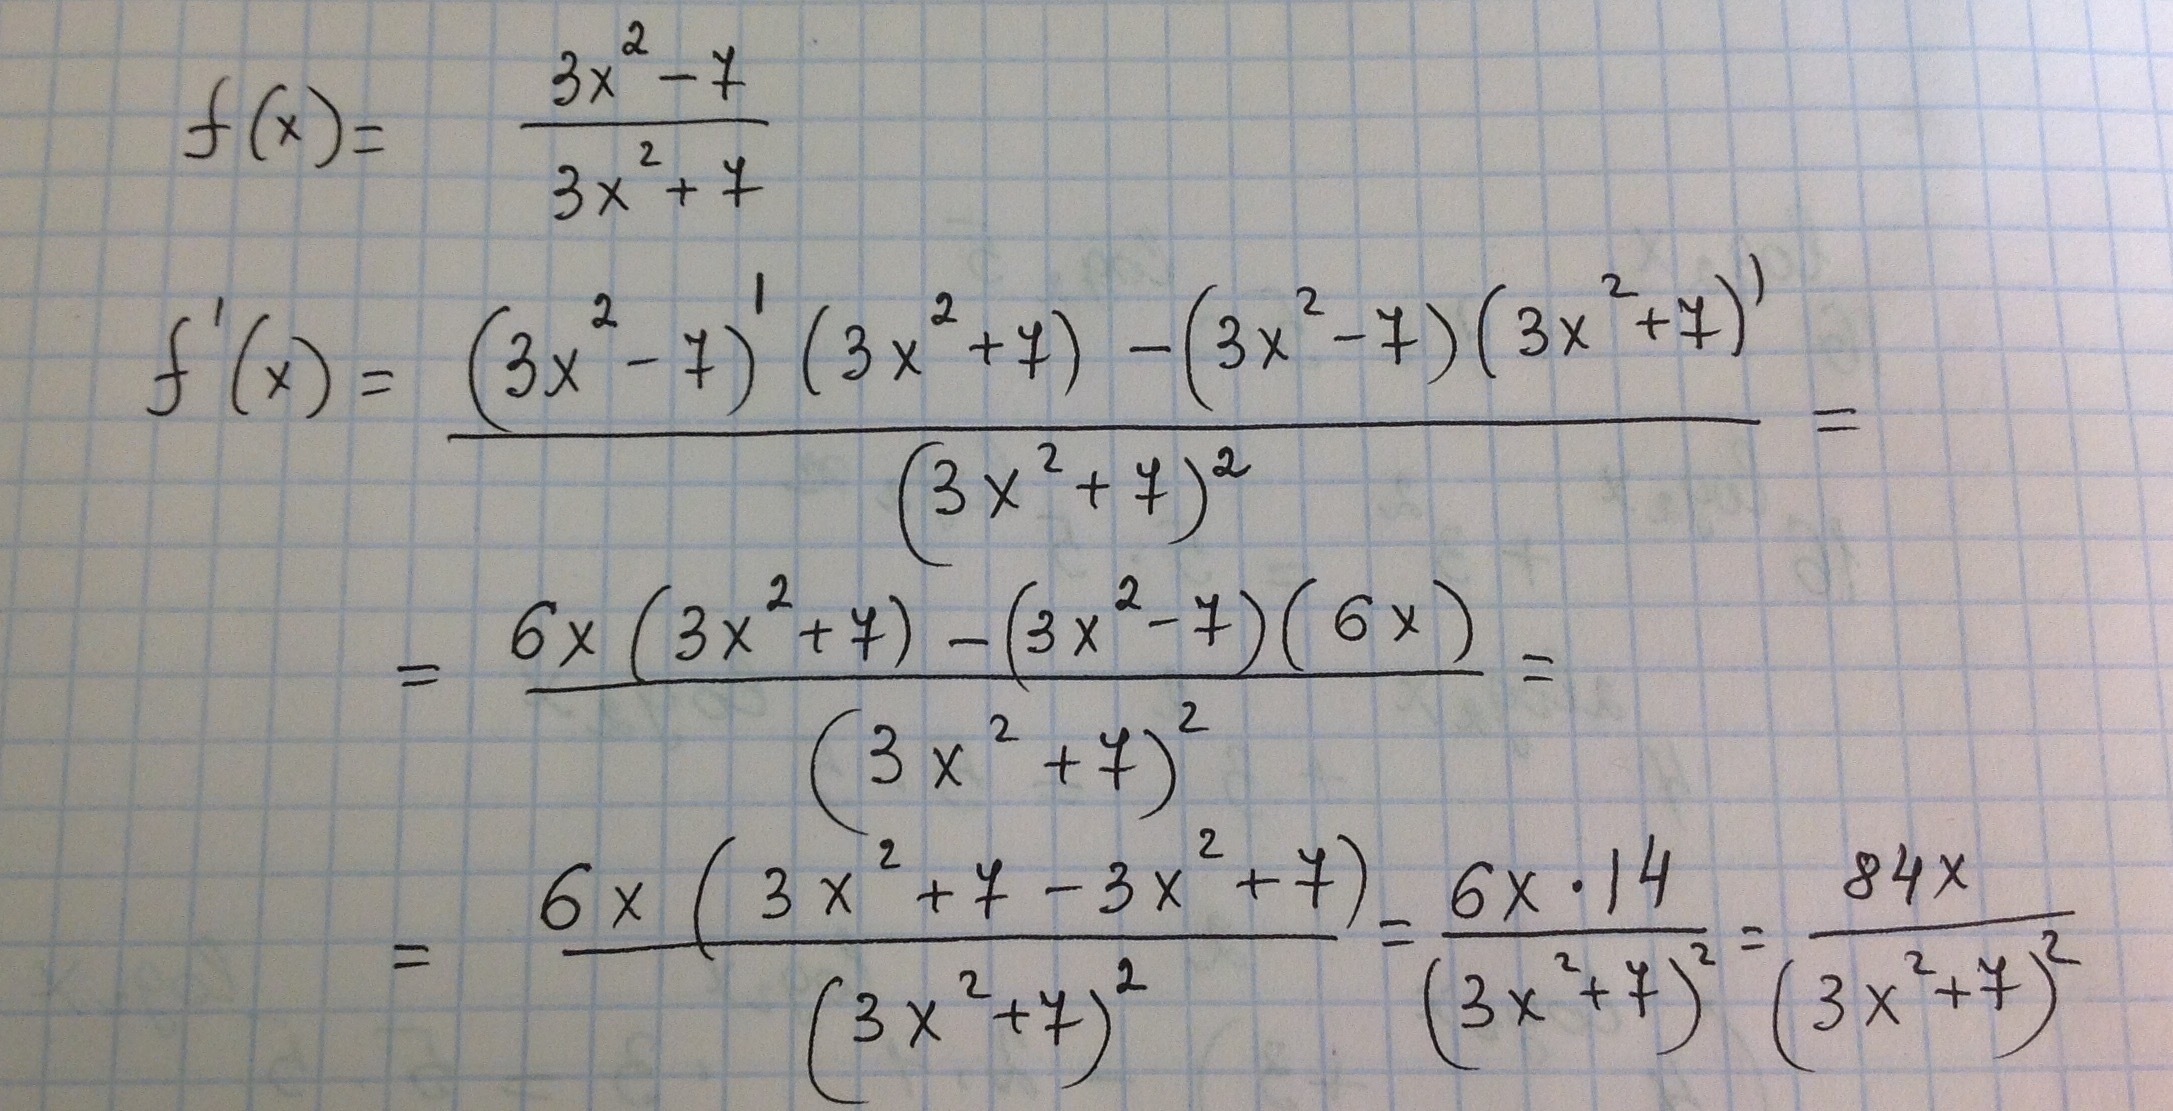 f(x) = (3x² - 7) / (3x² + 7)
f'(x) = ((3x² - 7)' (3x² + 7) - (3x² - 7)(3x² + 7)') / (3x² + 7)² =
= (6x (3x² + 7) - (3x² - 7)(6x)) / (3x² + 7)² =
= (6x (3x² + 7 - 3x² + 7)) / (3x² + 7)² = (6x · 14) / (3x² + 7)² = 84x / (3x² + 7)²